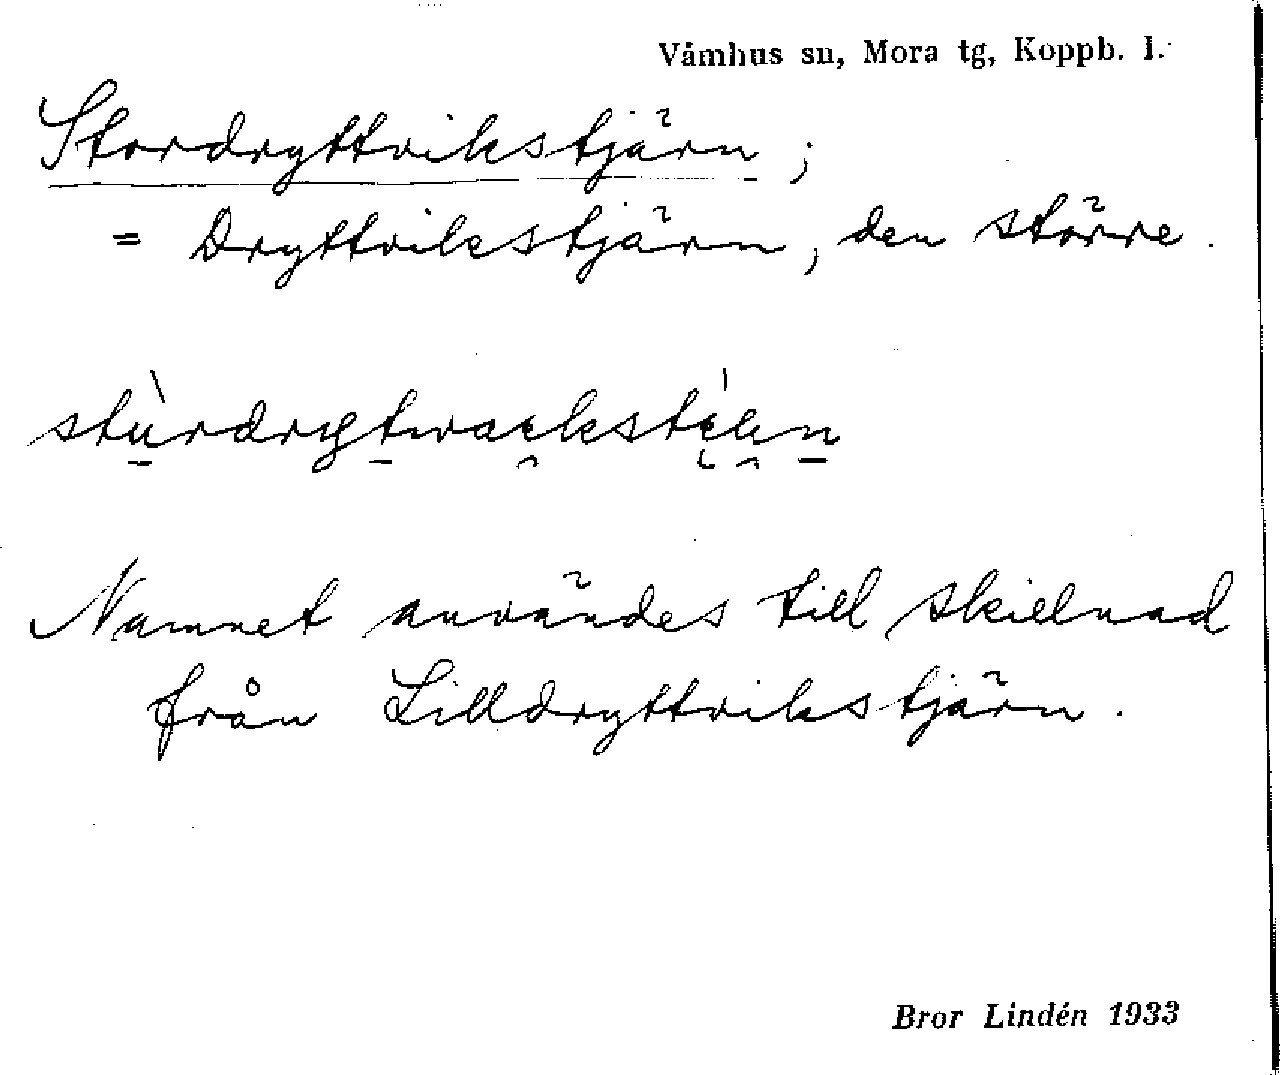 Våmhus sn, Mora tg, Koppb. l.
Stordryttvikstjärn;
= Dryttvikstjärn, den större.
Namnet användes till skillnad
från Lilldryttvikstjärn.
Bror Lindén 1933